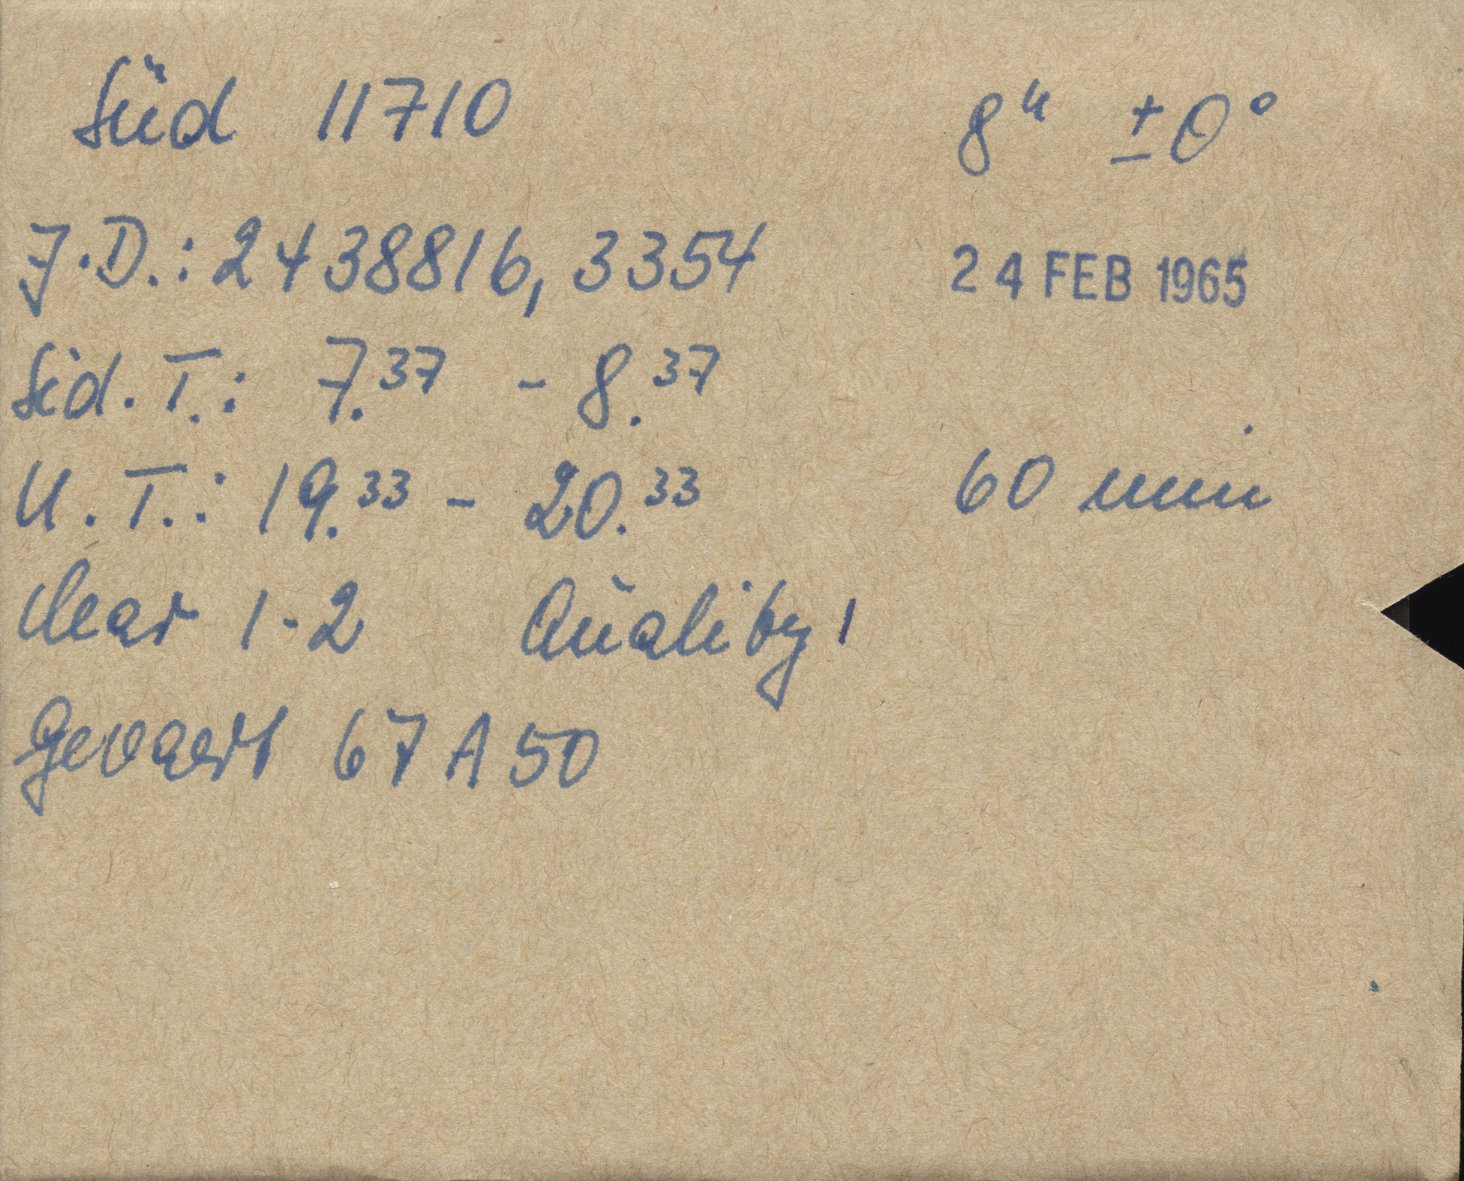 Süd 11710 8ʰ ±0°
J.D.: 2438816,3354 24 FEB 1965
Sid. T.: 7.³⁷ - 8.³⁷
U. T.: 19.³³ - 20.³³ 60 min
clear 1-2 Quality 1
Gevaert 67 A 50